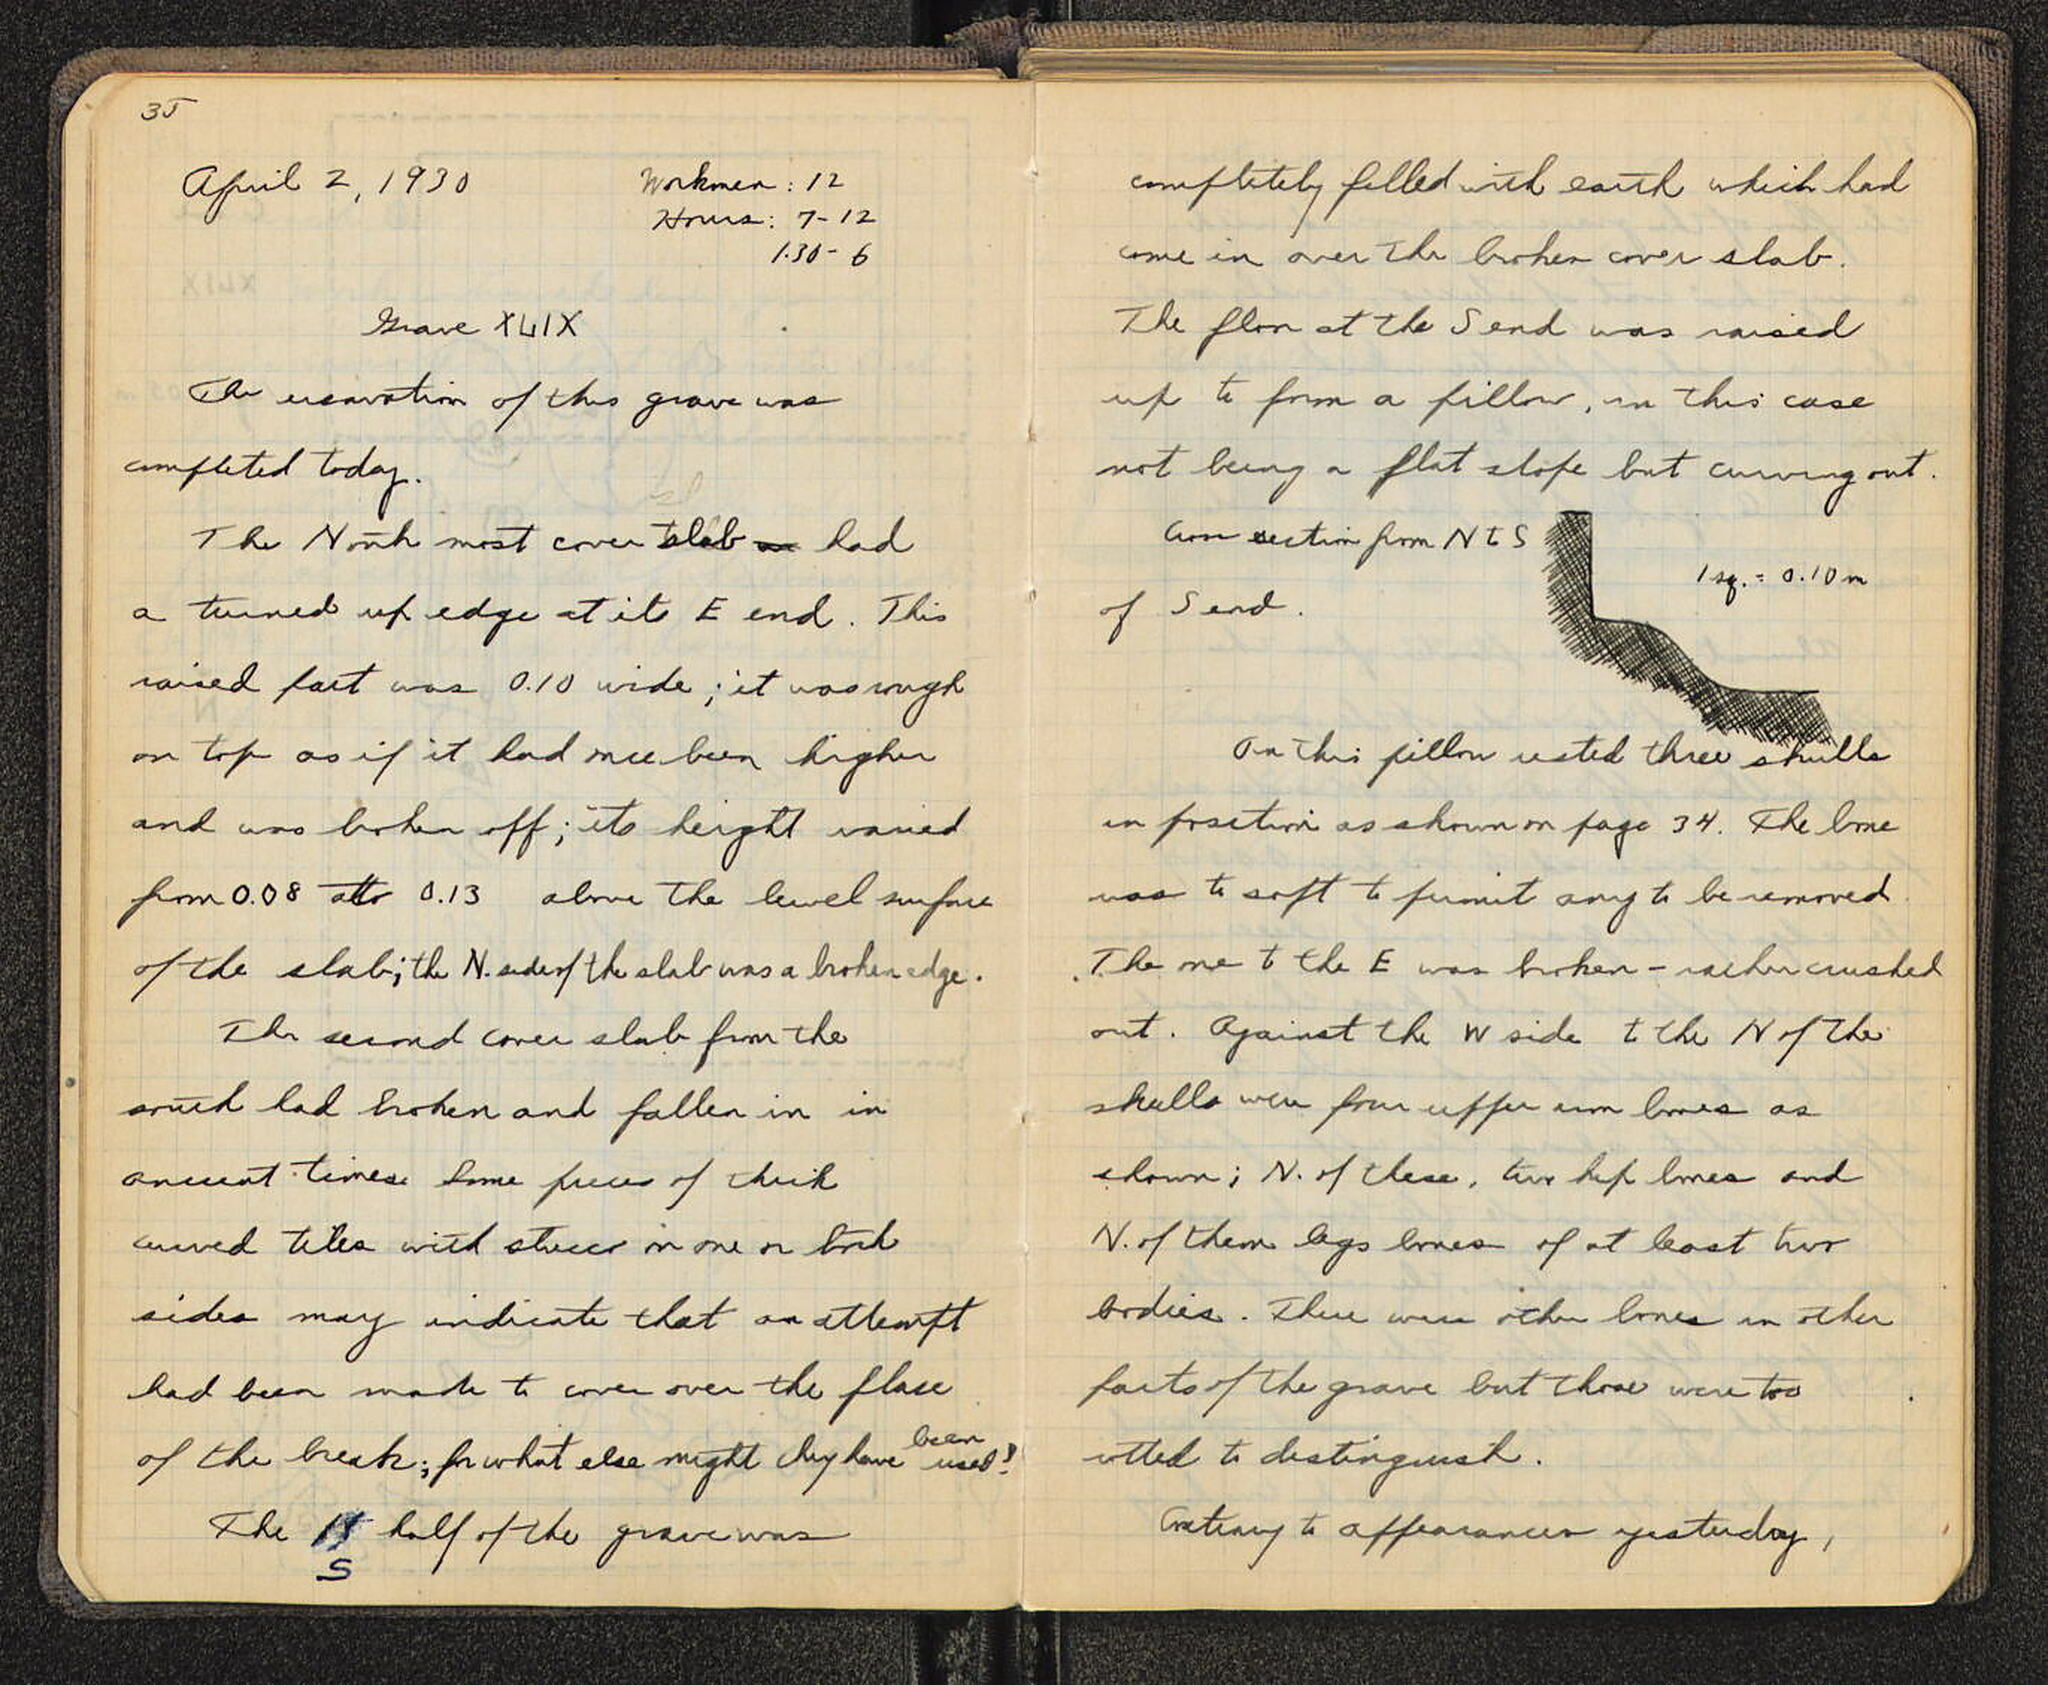 35
April 2, 1930
Workmen : 12
Hours : 7-12
1.30 - 6
Grave XLIX
The excavation of this grave was
completed today.
The North most cover slab had
a turned up edge at its E end. This
raised part was 0.10 wide ; it was rough
on top as if it had once been higher
and was broken off ; its height varied
from 0.08 to 0.13 above the level surface
of the slab; the N. side of the slab was a broken edge.
The second cover slab from the
south had broken and fallen in in
ancient times. Some pieces of thick
curved tiles with stucco on one or both
sides may indicate that an attempt
had been made to cover over the place
of the break ; for what else might they have been used?
The S half of the grave was
completely filled with earth which had
come in over the broken cover slab.
The floor at the S end was raised
up to form a pillow, in this case
not being a flat slope but curving out.
Cross section from N to S
1 sq. = 0.10 m
of S end.
On this pillow rested three skulls
in position as shown on page 34. The bone
was to soft to permit any to be removed
The one to the E was broken - rather crushed
out. Against the W side to the N of the
skulls were four upper arm bones as
shown ; N. of these, two hip bones and
N. of them legs bones of at least two
bodies. There were other bones in other
parts of the grave but those were too
rotted to distinguish.
Contrary to appearances yesterday,